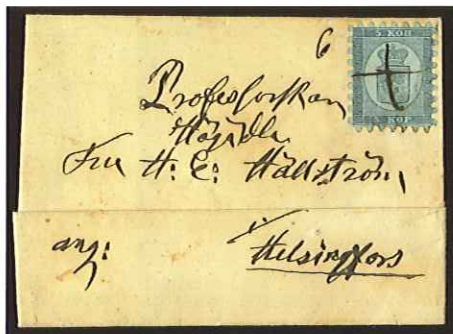 6
5. KOP
Professorskan
Högädla
Fru H: E: Hällström
5. KOP
ang:
i
Helsingfors